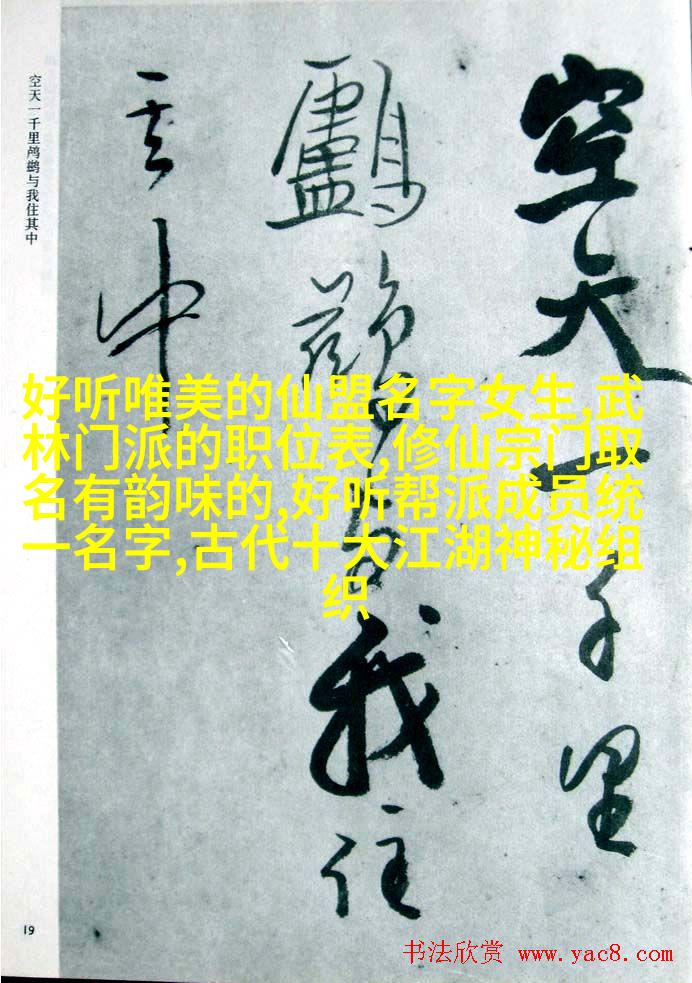 空天一千里
鸕鷀与我住
其中
空天一千里鸬鹚与我住其中
好听唯美的仙盟名字女生,武
林门派的职位表,修仙宗门取
名有韵味的,好听帮派成员统
一名字,古代十大江湖神秘组
织
19
书法欣赏 www.yac8.com